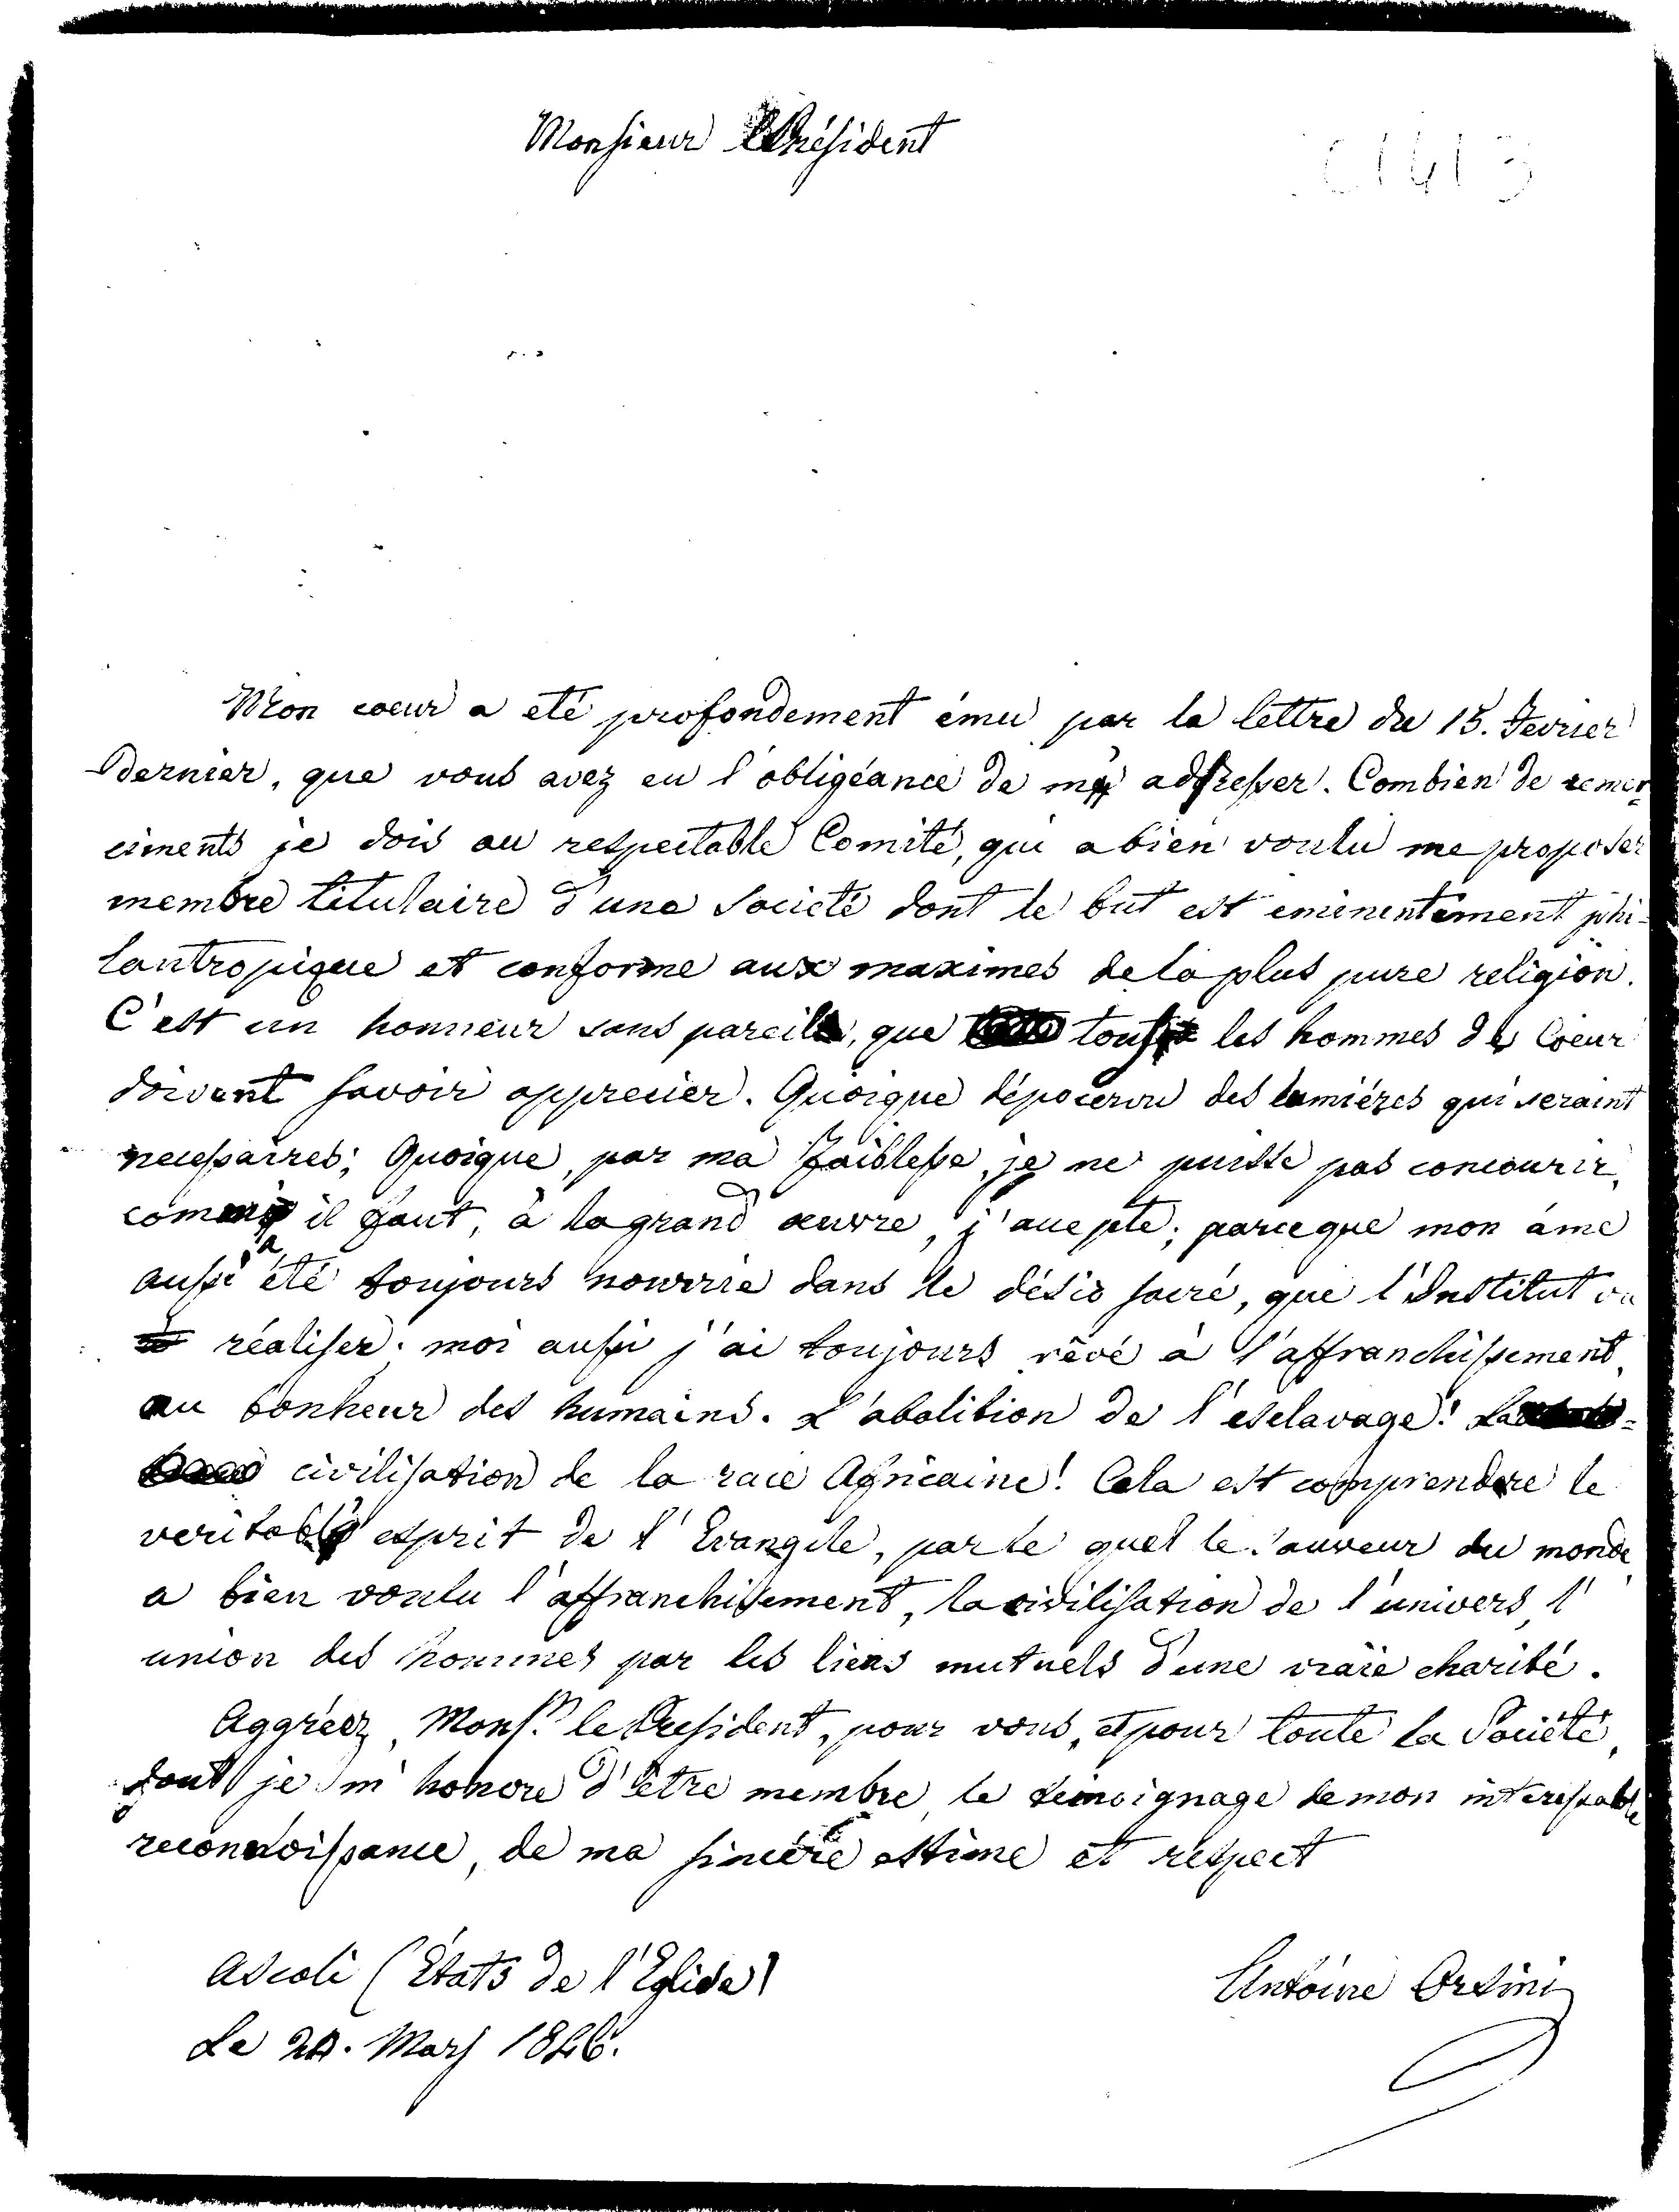 Monsieur le Président
C1413
Mon coeur a eté profondement ému par la lettre du 15. Fevrier
dernier, que vous avez eu l'obligéance de m'adresser. Combien de remer-
ciments je dois au respectable Comité, qui a bien voulu me proposer
membre titulaire d'une Societé dont le but est eminentement phi-
lantropique et conforme aux maximes de la plus pure religion.
C'est un honneur sans pareil, que tous les hommes de Coeur
doivent savoir apprecier. Quoique dépourvu des lumiéres qui seraint
necessaires; Quoique, par ma faiblesse, je ne puisse pas concourir,
comme il faut, à la grand œuvre, j'accepte; parceque mon âme
aussi a été toujours nourrie dans le désir sacré, que l'Institut va
réaliser. moi aussi j'ai toujours rêvé a l'affranchissement,
au bonheur des humains. L'abolition de l'esclavage! La
civilisation de la race Africaine! Cela est comprendre le
veritable esprit de l'Evangile, par le quel le Sauveur du monde
a bien voulu l'affranchissement, la civilisation de l'univers, l'
union des hommes par les liens mutuels d'une vraie charité.
Aggréez, Mons.r le President, pour vous, et pour toute la Societé,
dont je m'honore d'être membre, le temoignage de mon
reconnoissance, de ma sincère estime et respect
Ascoli (États de l'Eglise)
Antoine Orsini
Le 24. Mars 1846.